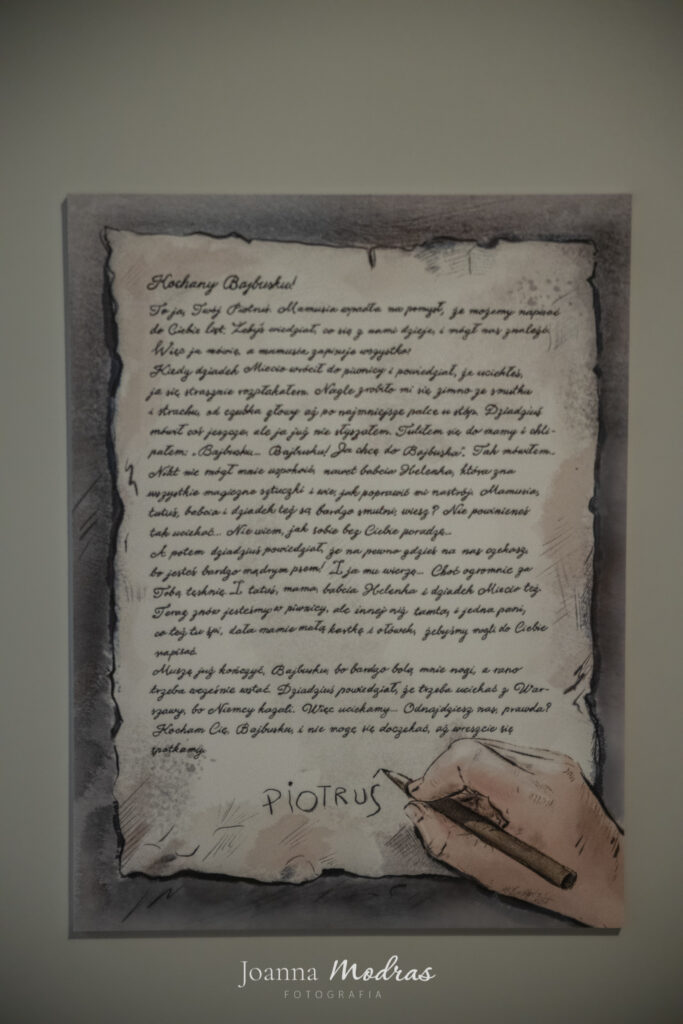 Kochany Bajbusku!
To ja, Twój Piotruś. Mamusia wpadła na pomysł, że możemy napisać
do Ciebie list. Żebyś wiedział, co się z nami dzieje, i mógł nas znaleźć.
Więc ja mówię, a mamusia zapisuje wszystko!
Kiedy dziadek Miecio wrócił do piwnicy i powiedział, że uciekłeś,
ja się strasznie rozpłakałem. Nagle zrobiło mi się zimno ze smutku
i strachu, od czubka głowy aż po najmniejsze palce u stóp. Dziadziuś
mówił coś jeszcze, ale ja już nie słyszałem. Tuliłem się do mamy i chli-
pałem: „Bajbuska... Bajbusku! Ja chcę do Bajbuska”. Tak mówiłem...
Nikt nie mógł mnie uspokoić, nawet babcia Helenka, która zna
wszystkie magiczne sztuczki i wie, jak poprawić mi nastrój. Mamusia,
tatuś, babcia i dziadek też są bardzo smutni, wiesz? Nie powinieneś
tak uciekać... Nie wiem, jak sobie bez Ciebie poradzę...
A potem dziadziuś powiedział, że na pewno gdzieś na nas czekasz,
bo jesteś bardzo mądrym psem! I ja mu wierzę... Choć ogromnie za
Tobą tęsknię. I tatuś, mama, babcia Helenka i dziadek Miecio też.
Teraz znów jesteśmy w piwnicy, ale innej niż tamta, i jedna pani,
co też tu śpi, dała mamie małą kartkę i ołówek, żebyśmy mogli do Ciebie
napisać.
Muszę już kończyć, Bajbusku, bo bardzo bolą mnie nogi, a rano
trzeba wcześnie wstać. Dziadziuś powiedział, że trzeba uciekać z War-
szawy, bo Niemcy kazali. Więc uciekamy... Odnajdziesz nas, prawda?
Kocham Cię, Bajbusku, i nie mogę się doczekać, aż wreszcie się
spotkamy.
PIOTRUŚ
Joanna Modras
FOTOGRAFIA